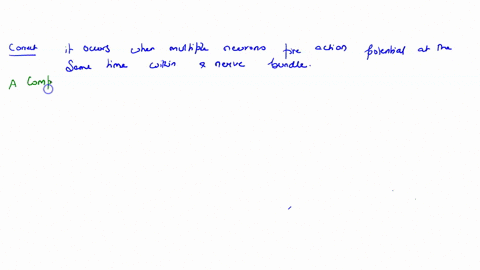 Correct it occurs when multiple neurons fire action potential at the
same time within a nerve bundle.
A Comp